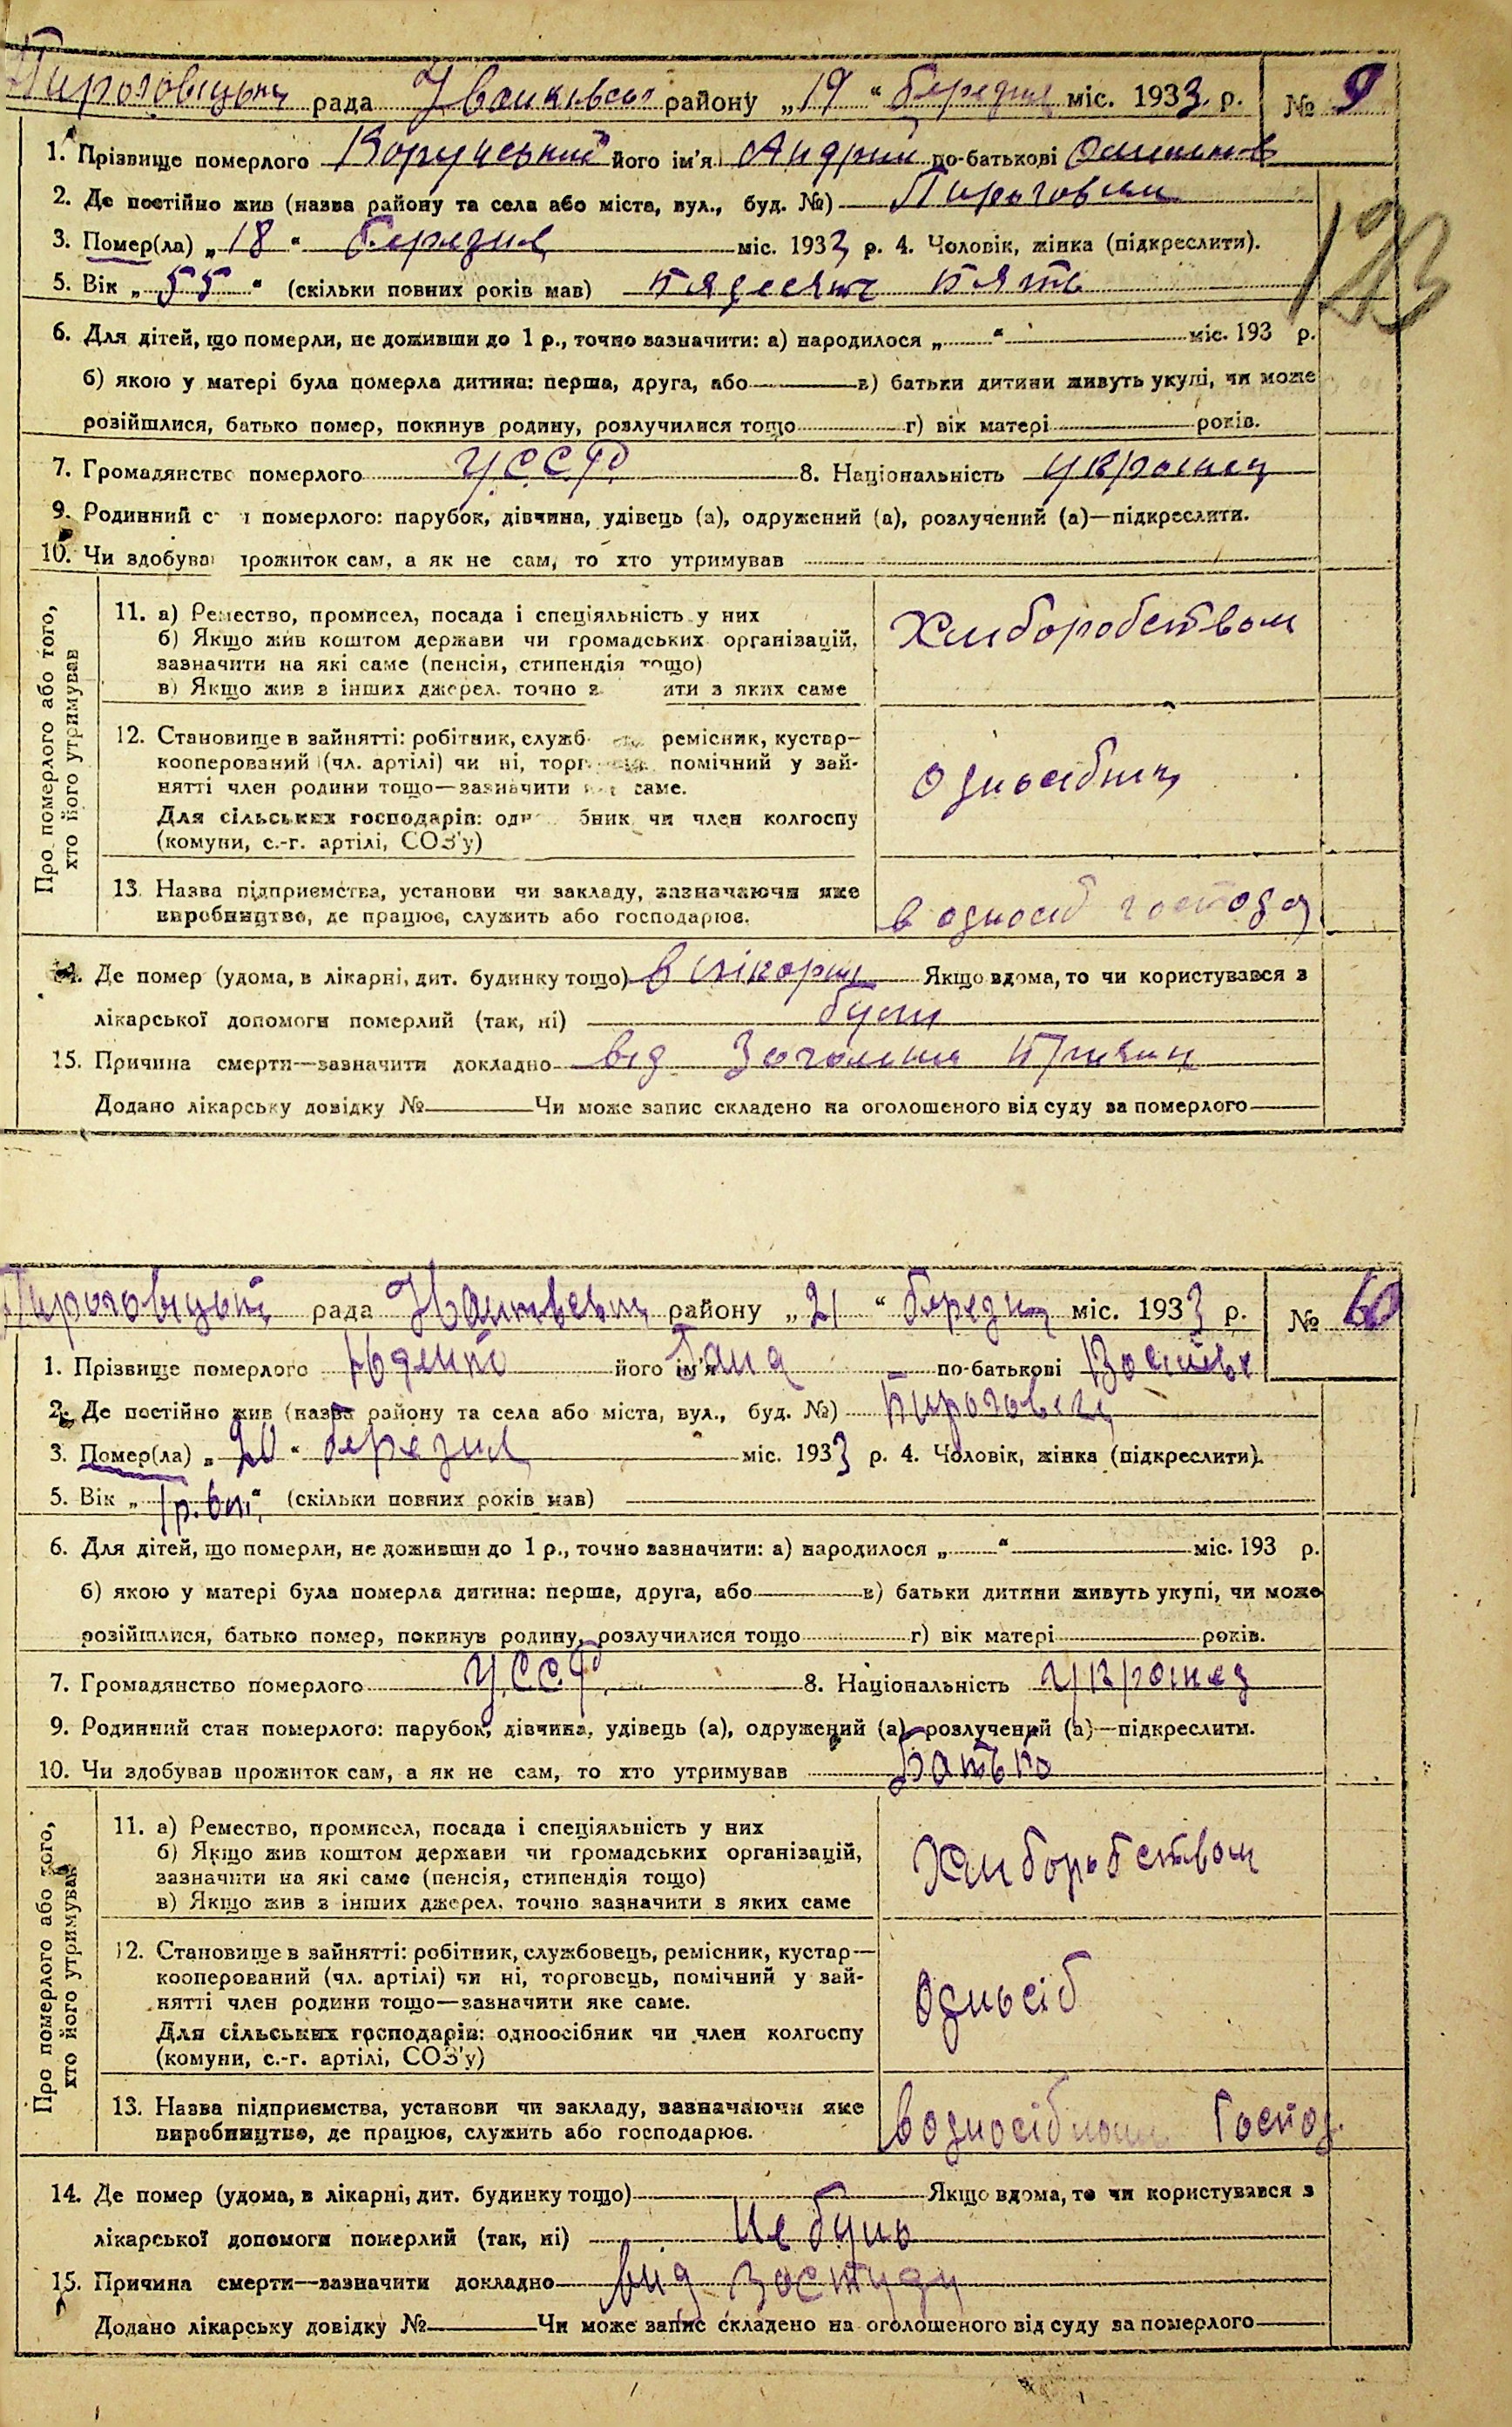 рада району „19“ березня міс. 1933 р. № 9
1. Прізвище померлого його ім'я Андрий по-батькові
2. Де постійно жив (назва району та села або міста, вул., буд. №)
3. Помер(ла) „18“ березня міс. 1933 р. 4. Чоловік, жінка (підкреслити).
5. Вік „55“ (скільки повних років мав) пядесят пять
123
6. Для дітей, що померли, не доживши до 1 р., точно зазначити: а) народилося „ “ міс. 193 р.
б) якою у матері була померла дитина: перша, друга, або в) батьки дитини живуть укупі, чи може
розійшлися, батько помер, покинув родину, розлучилися тощо г) вік матері років.
7. Громадянство померлого У.С.С.Р. 8. Національність украинец
9. Родинний с і померлого: парубок, дівчина, удівець (а), одружений (а), розлучений (а)—підкреслити.
10. Чи здобува прожиток сам, а як не сам, то хто утримував
Про померлого або того,
хто його утримував
11. а) Ремество, промисел, посада і спеціяльність у них
б) Якщо жив коштом держави чи громадських організацій,
зазначити на які саме (пенсія, стипендія тощо)
в) Якщо жив з інших джерел, точно з ити з яких саме
Хлиборобством
12. Становище в зайнятті: робітник, служб ремісник, кустар—
кооперований (чл. артілі) чи ні, торг помічний у зай-
нятті член родини тощо—зазначити саме.
Для сільських господарів: одн бник чи член колгоспу
(комуни, с.-г. артілі, СОЗ'у)
13. Назва підприємства, установи чи закладу, зазначаючи яке
виробництво, де працює, служить або господарює.
в односіб господ
14. Де помер (удома, в лікарні, дит. будинку тощо) Якщо вдома, то чи користувався з
лікарської допомоги померлий (так, ні)
15. Причина смерти—зазначити докладно від
Додано лікарську довідку № Чи може запис складено на оголошеного від суду за померлого
рада району „21“ березня міс. 1933 р. № 60
1. Прізвище померлого його ім'я по-батькові
2. Де постійно жив (назва району та села або міста, вул., буд. №)
3. Помер(ла) „20“ березня міс. 1933 р. 4. Чоловік, жінка (підкреслити).
5. Вік „ “ (скільки повних років мав)
6. Для дітей, що померли, не доживши до 1 р., точно зазначити: а) народилося „ “ міс. 193 р.
б) якою у матері була померла дитина: перша, друга, або в) батьки дитини живуть укупі, чи може
розійшлися, батько помер, покинув родину, розлучилися тощо г) вік матері років.
7. Громадянство померлого У.С.С.Р. 8. Національність украинец
9. Родинний стан померлого: парубок, дівчина, удівець (а), одружений (а), розлучений (а)—підкреслити.
10. Чи здобував прожиток сам, а як не сам, то хто утримував Батько
Про померлого або того,
хто його утримував
11. а) Ремество, промисел, посада і спеціяльність у них
б) Якщо жив коштом держави чи громадських організацій,
зазначити на які саме (пенсія, стипендія тощо)
в) Якщо жив з інших джерел, точно зазначити з яких саме
Хлиборобством
12. Становище в зайнятті: робітник, службовець, ремісник, кустар—
кооперований (чл. артілі) чи ні, торговець, помічний у зай-
нятті член родини тощо—зазначити яке саме.
Для сільських господарів: одноосібник чи член колгоспу
(комуни, с.-г. артілі, СОЗ'у)
Односіб
13. Назва підприємства, установи чи закладу, зазначаючи яке
виробництво, де працює, служить або господарює.
в односібном Господ.
14. Де помер (удома, в лікарні, дит. будинку тощо) Якщо вдома, то чи користувався з
лікарської допомоги померлий (так, ні) не було
15. Причина смерти—зазначити докладно вид застуди
Додано лікарську довідку № Чи може запис складено на оголошеного від суду за померлого